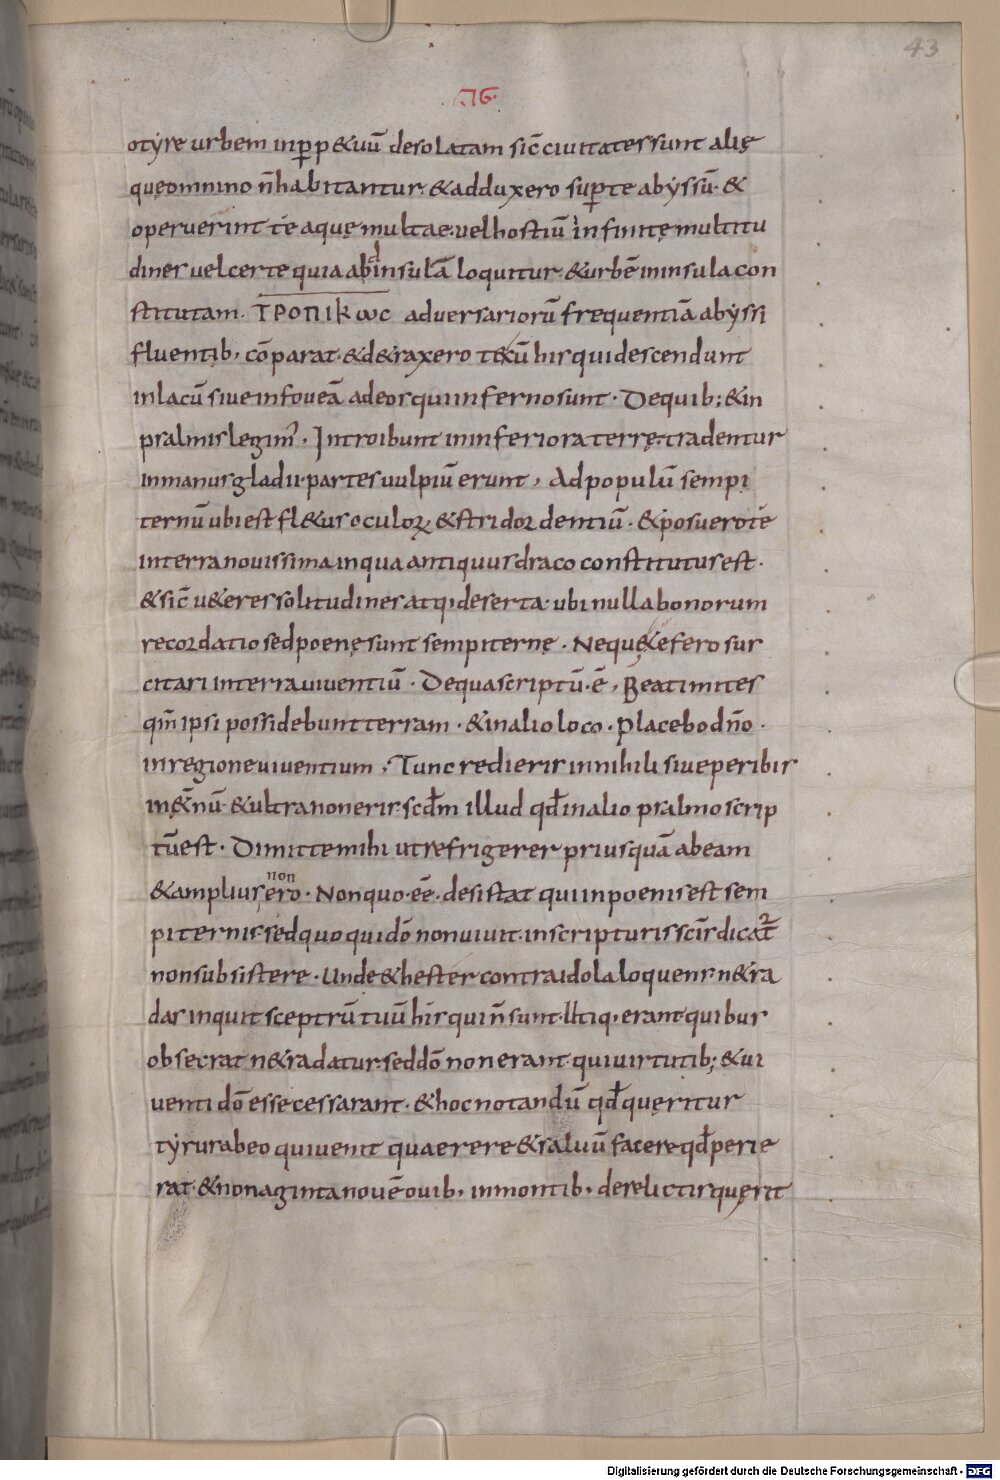 43
·Π6·
otyre urbem inp̲p&uū desolatam sic̄ ciuitates sunt alię
quę omnino n̄ habitantur· & adduxero sup̲ te abyssū· &
operuerint te aquę multae· uel hostiū infinitę multitu
dines uel certe quia ad insulā loquitur & urbē in insula con
stitutam· ΤΡΟΠΙΚωC adversariorū frequentiā abyssi
fluentib, cōparat· & d&raxero te cū his qui descendunt
in lacū siue in foueā ad eos qui inferno sunt· De quib; & in
psalmis legim᾿· Introibunt in inferiora terrę· tradentur
in manus gladii· partes uulpiū erunt, Ad populū sempi
ternū ubi est fl&us oculoꝝ & stridor dentiū· & posuero te
in terra nouissima in qua antiquus draco constitutus est·
& sic̄ u&eres solitudines atq; deserta· ubi nulla bonorum
recordatio sed poenę sunt sempiternę· Nequ& efero sus
citari in terra uiuentiū· De qua scriptū·ē, Beati mites
qm̄ ipsi possidebunt terram· & in alio loco· Placebo dn̄o·
in regione uiuentium, Tunc redieris in nihili siue peribis
in &̨nū· & ultra non eris· scd̄m illud qd̄ in alio psalmo scrip
tū est· Dimitte mihi ut refrigerer priusquā abeam
& amplius non ero· Non quo·eē· desistat qui in poenis est sem
piternis· sed quo qui dō non uiuit· in scripturis sc̄is dicat᷑
non subsistere· Unde & hester contra idola loquens· n& ra
das inquit sceptrū tuū his qui n̄ sunt· Utiq, erant quibus
obsecrat n& radatur· sed dō non erant· qui uirtutib; & ui
uenti dō esse cessarant· & hoc notandū qd̄ quęritur
tyrus ab eo qui uenit quaerere & saluū facere qd̄ perie
rat· & nonaginta nouē ouib, in montib, derelictis quęrit
Digitalisierung gefördert durch die Deutsche Forschungsgemeinschaft - DFG